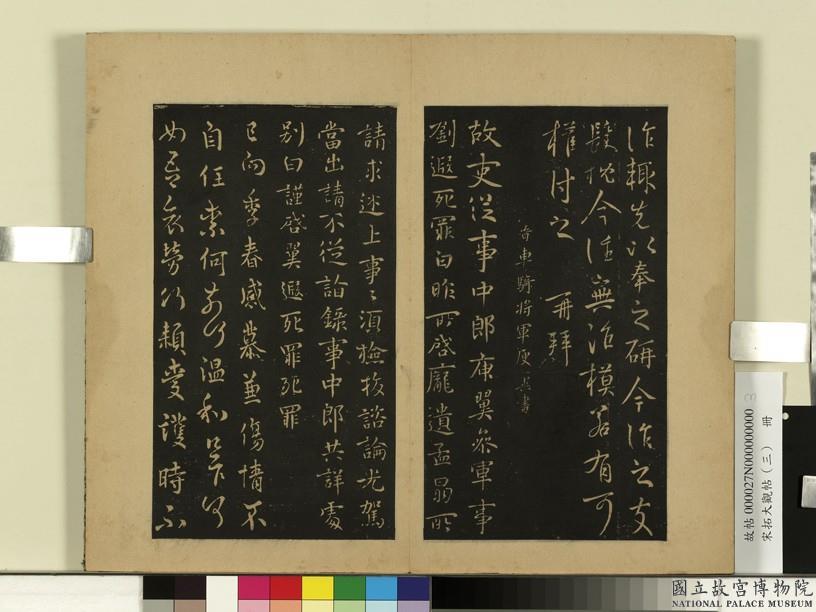 作輒先以奉之研今作之支
髮抱今佳無治模若有可
權付之 再拜
晉車騎將軍庾翼書
故吏從事中郎庾翼參軍事
劉遐死罪白昨所啓龐遺孟昺所
請求迷上事々須檢校諮論光駕
當出請不從詣錄事中郎共詳處
別白謹啓翼遐死罪死罪
已向季春感慕兼傷情不
自任奈何奈何溫和足下何
如吾哀勞何賴愛護時不
故帖000027N000000000 3
宋拓大觀帖(三) 冊
國立故宮博物院
NATIONAL PALACE MUSEUM